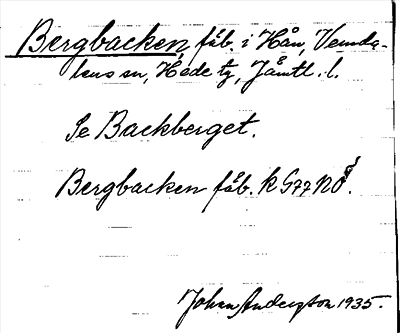 Bergbacken, fäb. i Hån, Vemda-
lens sn, Hede tg, Jämtl. l.
Se Backberget.
Bergbacken fäb. k G77 NO
Johan Andersson 1935.